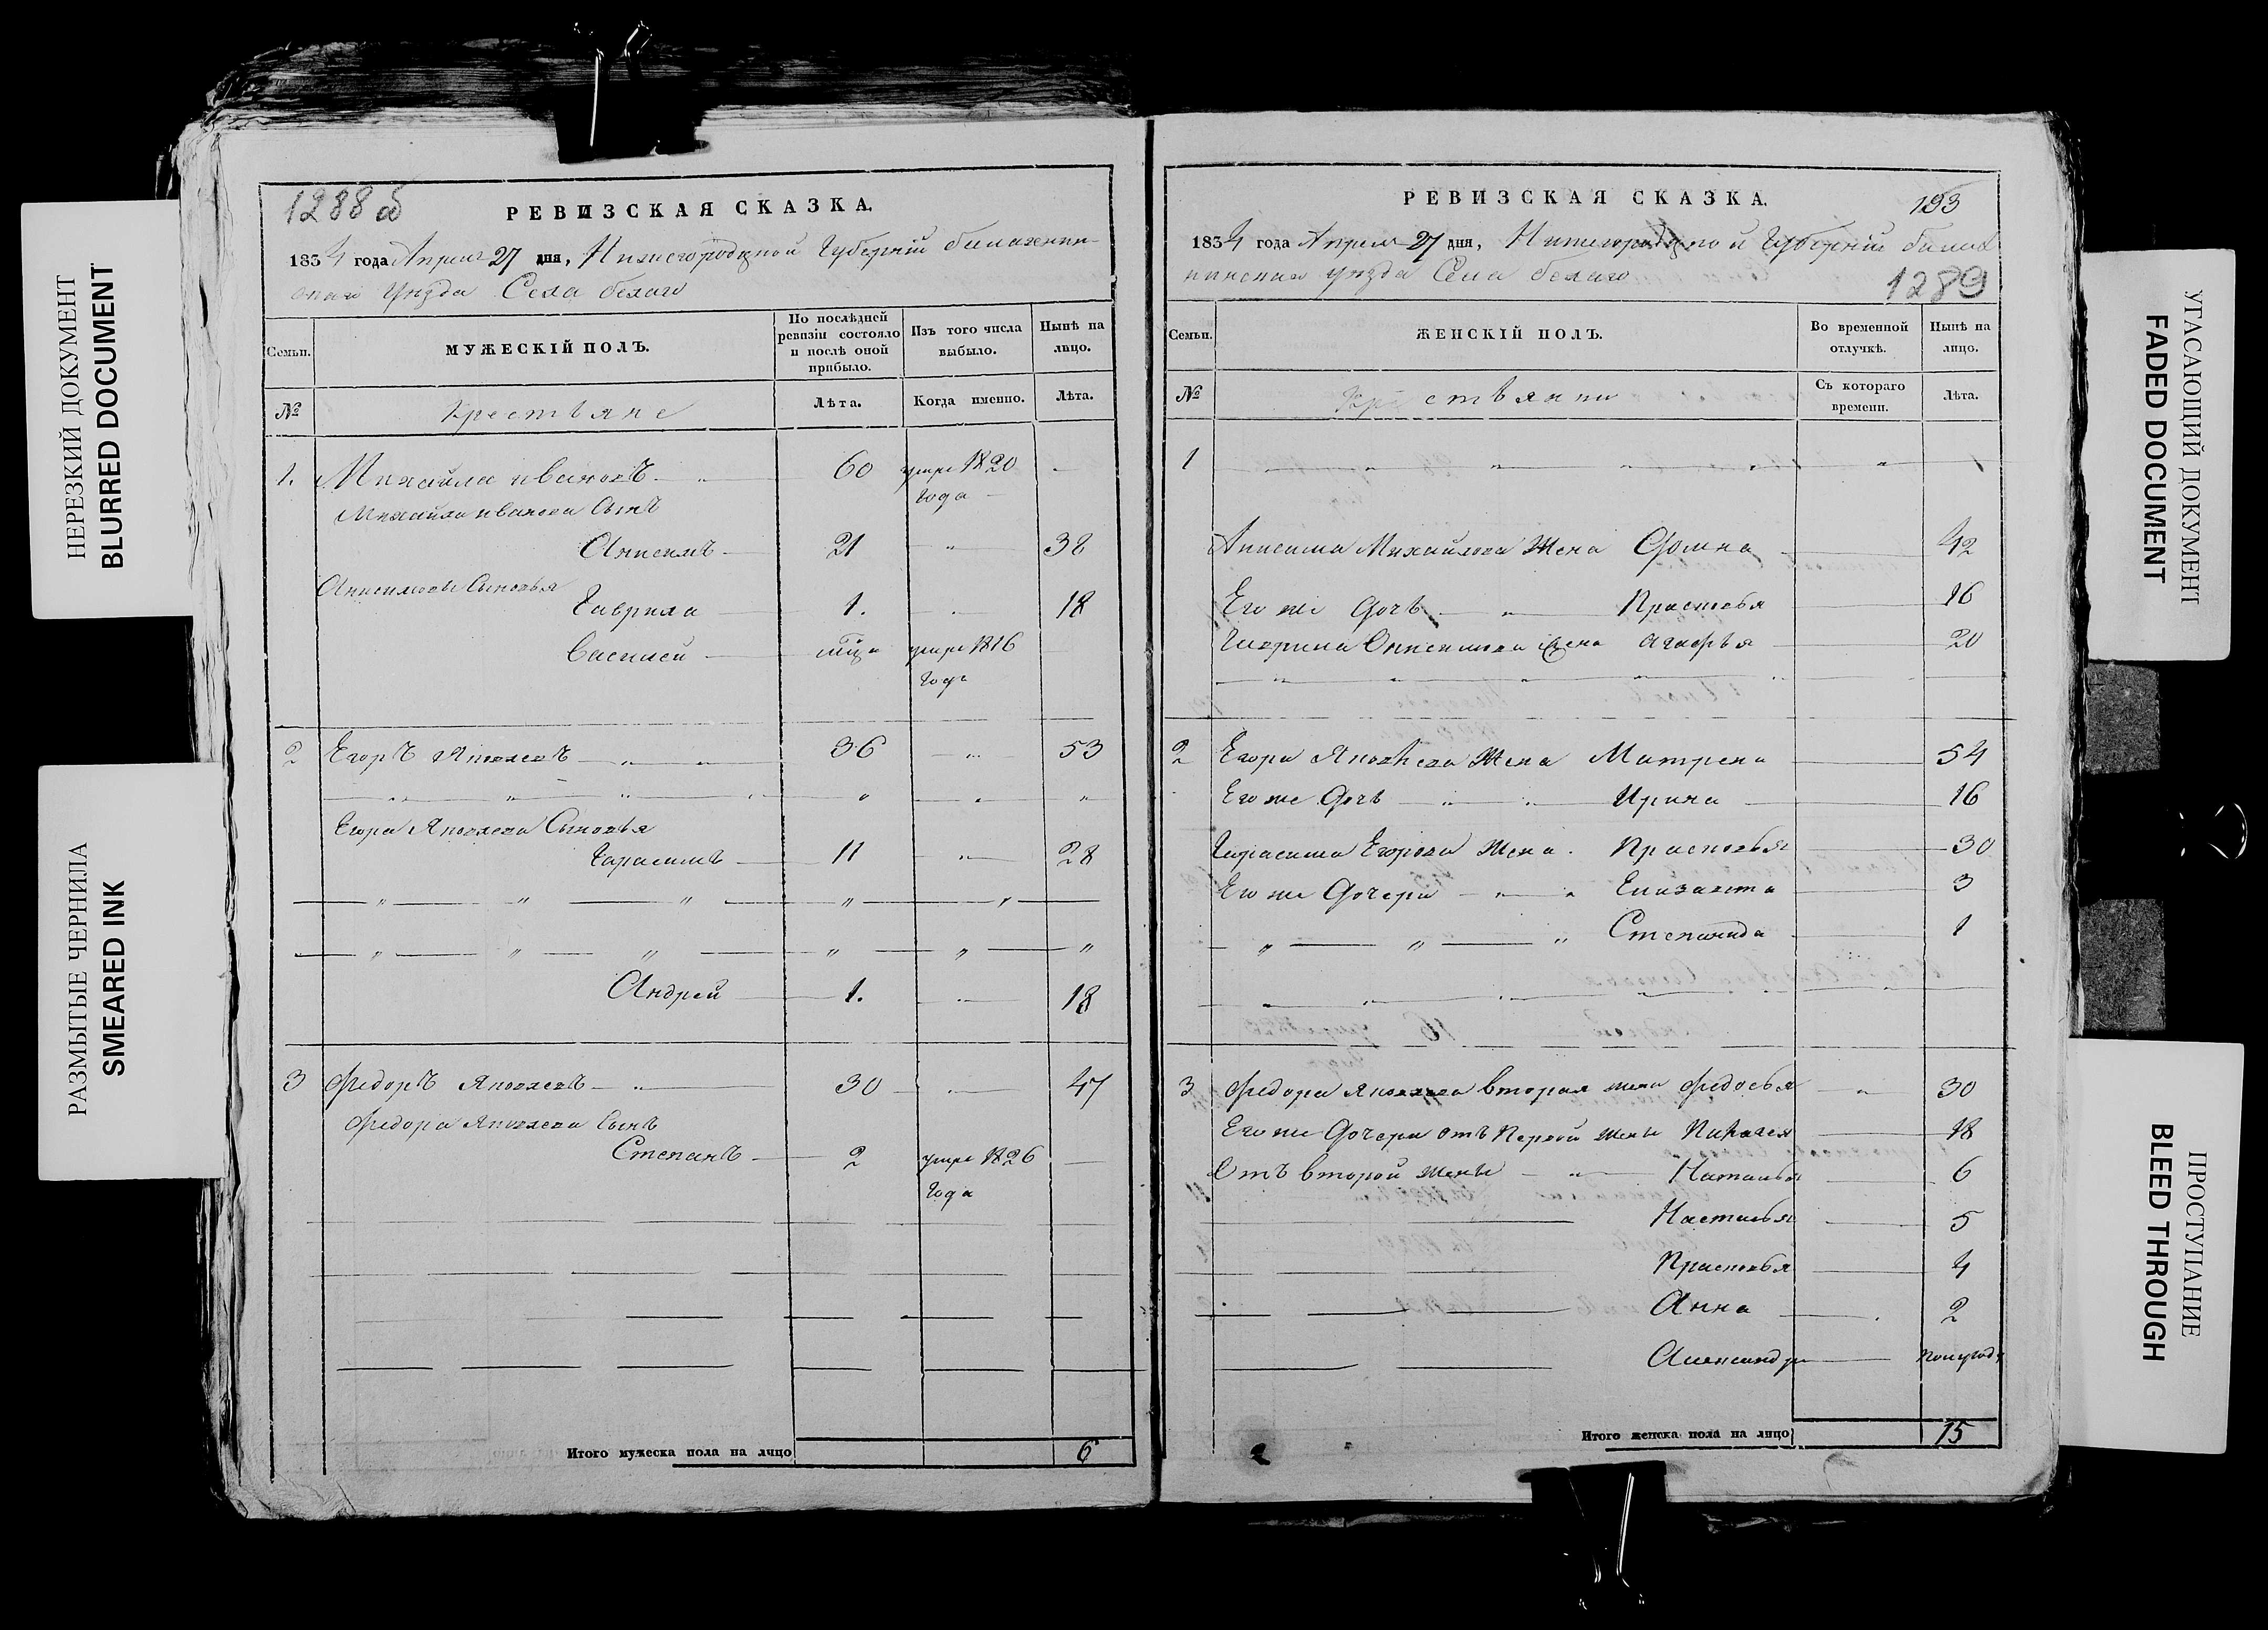 НЕРЕЗКИЙ ДОКУМЕНТ
BLURRED DOCUMENT
РАЗМЫТЫЕ ЧЕРНИЛА
SMEARED INK
1288 об
РЕВИЗСКАЯ СКАЗКА.
1834 года Апреля 27 дня, Нижегородской Губерніи
уѣзда Села белаго
Семьи.
МУЖЕСКІЙ ПОЛЪ.
По послѣдней ревизіи состояло и послѣ оной прибыло.
Изъ того числа выбыло.
Нынѣ на лицо.
№
Крестьяне
Лѣта.
Когда именно.
Лѣта.
1. Михайла ивановъ 60 умре 1820
года
Михайла иванова Сынъ
Анисимъ 21 " 38
Анисимовы Сыновья
Гаврила 1. " 18
Василей нѣд умре 1816
года
2 Егоръ Яковлевъ 36 " 53
Егора Яковлева Сыновья
Гарасимъ 11 " 28
Андрей 1. " 18
3 Федоръ Яковлевъ 30 " 47
Федора Яковлева Сынъ
Степанъ 2 умре 1826
года
Итого мужеска пола на лицо 6
РЕВИЗСКАЯ СКАЗКА.
193
1834 года Апреля 27 дня, Нижегородской Губерніи
уѣзда Села белаго
1289
Семьи.
ЖЕНСКІЙ ПОЛЪ.
Во временной отлучкѣ.
Нынѣ на лицо.
№
Съ котораго времени.
Лѣта.
1
Анисима Михайлова Жена Фомна 42
Его же Дочь " Прасковья 16
Гаврила Онисимова Жена Агафья 20
2 Егора Яковлева Жена Матрена 54
Его же Дочь " " Ирина 16
Гарасима Егорова Жена Прасковья 30
Его же Дочери " " Елизавета 3
Степанида 1
3 Федора Яковлева вторая жена Федосья 30
Его же Дочери отъ Первой жены Пилагея 18
Отъ второй жены " Наталья 6
Настасья 5
Прасковья 4
Анна 2
Александра полугода
Итого женска пола на лицо 15
УГАСАЮЩИЙ ДОКУМЕНТ
FADED DOCUMENT
ПРОСТУПАНИЕ
BLED THROUGH